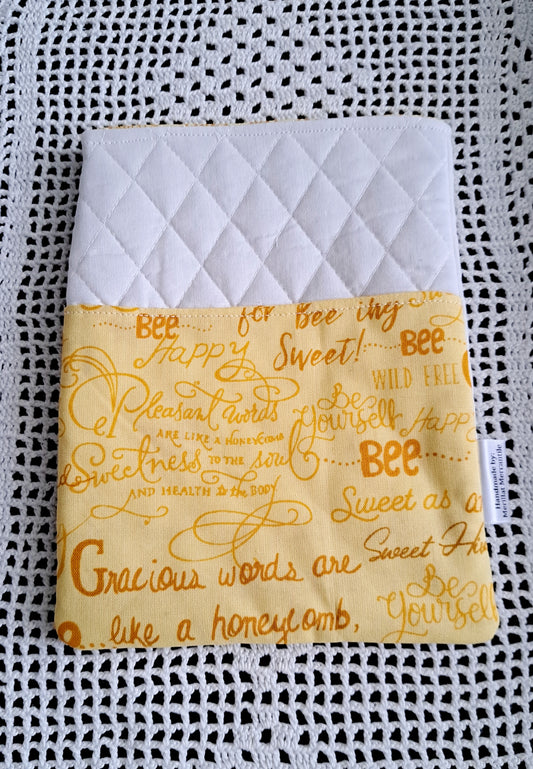 for Bee ing
BEE
Happy
Sweet!
BEE
WILD FREE
Pleasant words
ARE LIKE A HONEYCOMB
Sweetness TO THE soul
AND HEALTH to the BODY
Be
Yourself
Happy
BEE
Sweet as a
Handmade by:
Merillat Mercantile
Gracious words are
Sweet
like a honeycomb,
Be
Yourself